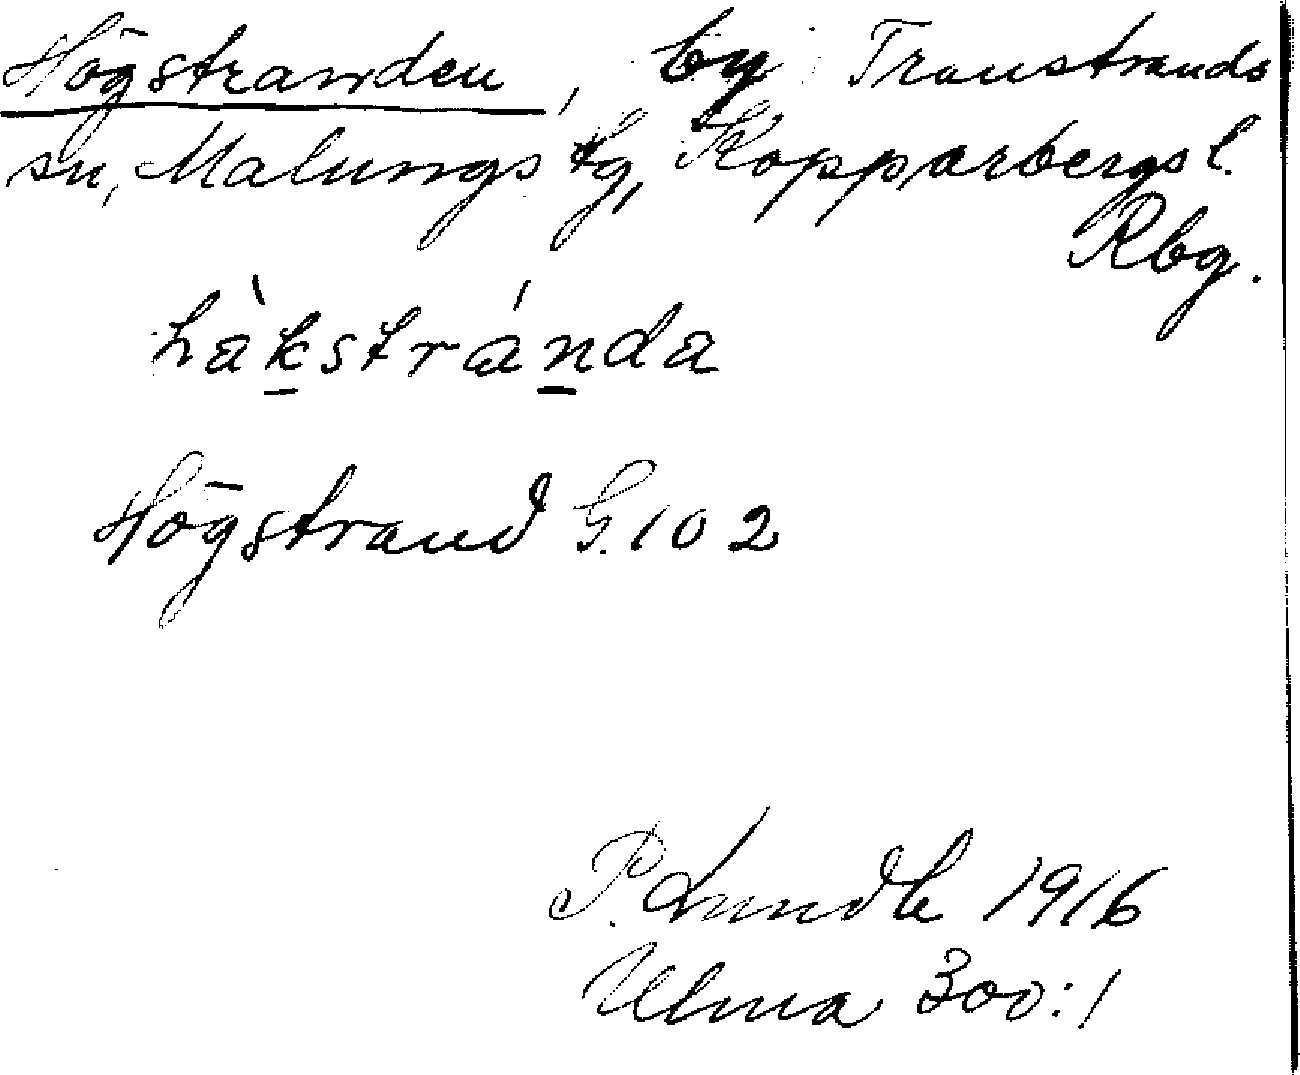 Högstranden, by Transtrands
sn, Malungs tg, Kopparbergs l.
Rbg.
hàkstránda
Högstrand G. 102
P. Lundh 1916
Ulma 300:1